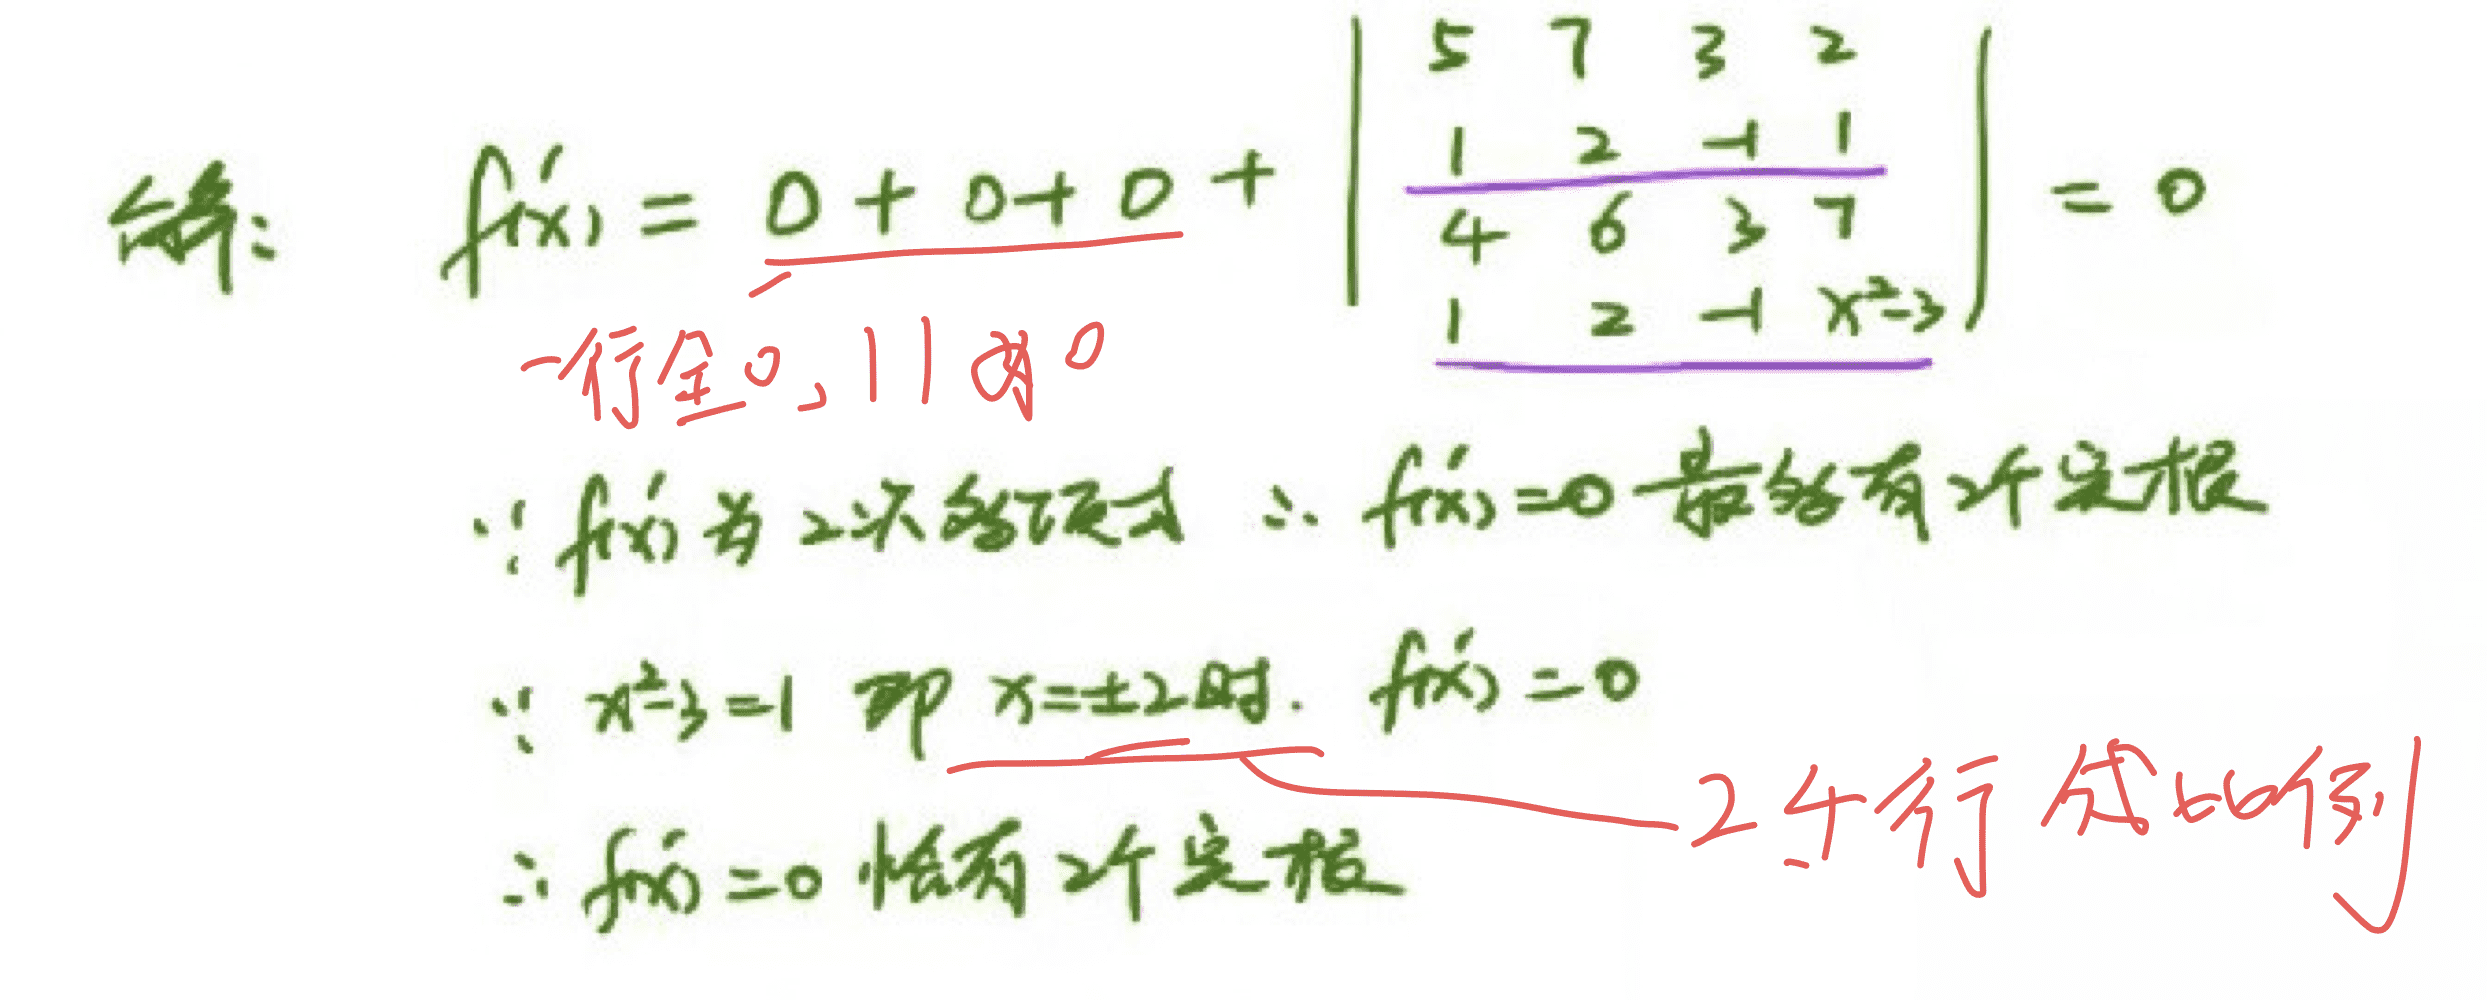 解: f'(x) = 0 + 0 + 0 + | 5 7 3 2
1 2 -1 1
4 6 3 7
1 2 -1 x²-3 | = 0
一行全0, | | 为0
∵ f'(x) 为 2次多项式 ∴ f'(x) = 0 最多有 2个实根
∵ x²-3 = 1 即 x = ±2时. f'(x) = 0
2.4行 成比例
∴ f'(x) = 0 恰有 2个实根